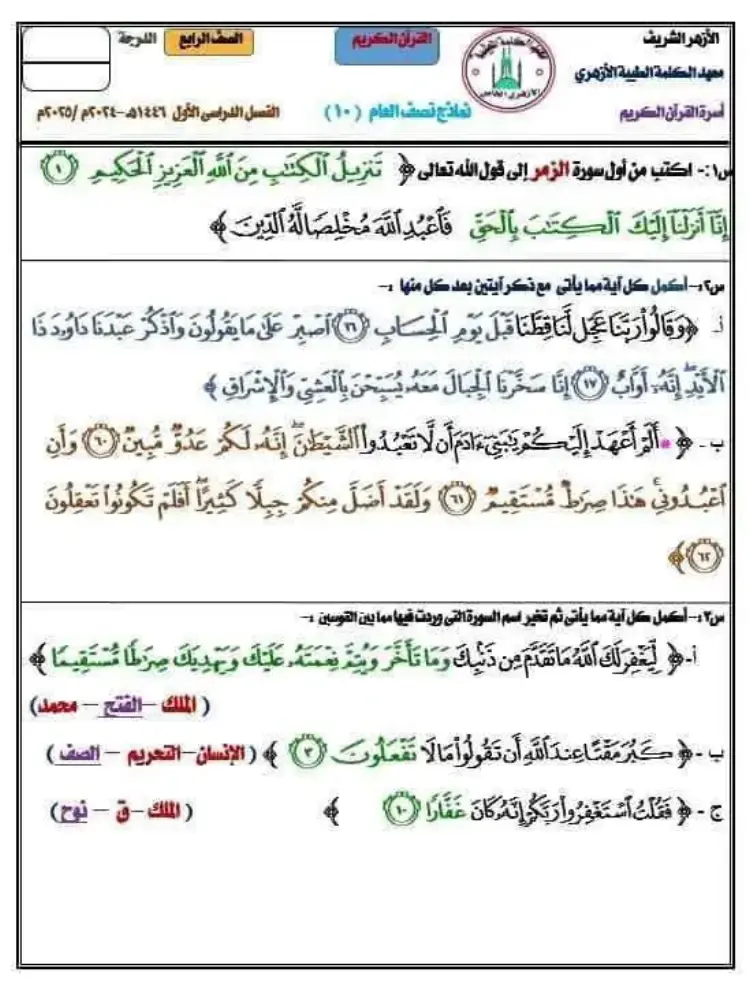 الأزهر الشريف
معهد الكلمة الطيبة الأزهري
أسرة القرآن الكريم
القرآن الكريم
نماذج نصف العام (١٠)
الصف الرابع
الدرجة
الفصل الدراسي الأول ١٤٤٦هـ-٢٠٢٤م /٢٠٢٥م
س١:- اكتب من أول سورة الزمر إلى قول الله تعالى ﴿ تَنزِيلُ ٱلْكِتَٰبِ مِنَ ٱللَّهِ ٱلْعَزِيزِ ٱلْحَكِيمِ ١
إِنَّآ أَنزَلْنَآ إِلَيْكَ ٱلْكِتَٰبَ بِٱلْحَقِّ فَٱعْبُدِ ٱللَّهَ مُخْلِصًا لَّهُ ٱلدِّينَ ﴾
س٢:- أكمل كل آية مما يأتى مع ذكر آيتين بعد كل منها :-
أ- ﴿وَقَالُوا۟ رَبَّنَا عَجِّل لَّنَا قِطَّنَا قَبْلَ يَوْمِ ٱلْحِسَابِ ١٦ ٱصْبِرْ عَلَىٰ مَا يَقُولُونَ وَٱذْكُرْ عَبْدَنَا دَاوُۥدَ ذَا
ٱلْأَيْدِ ۖ إِنَّهُۥٓ أَوَّابٌ ١٧ إِنَّا سَخَّرْنَا ٱلْجِبَالَ مَعَهُۥ يُسَبِّحْنَ بِٱلْعَشِىِّ وَٱلْإِشْرَاقِ ﴾
ب- ﴿ *أَلَمْ أَعْهَدْ إِلَيْكُمْ يَٰبَنِىٓ ءَادَمَ أَن لَّا تَعْبُدُوا۟ ٱلشَّيْطَٰنَ ۖ إِنَّهُۥ لَكُمْ عَدُوٌّ مُّبِينٌ ٦٠ وَأَنِ
ٱعْبُدُونِى ۚ هَٰذَا صِرَٰطٌ مُّسْتَقِيمٌ ٦١ وَلَقَدْ أَضَلَّ مِنكُمْ جِبِلًّا كَثِيرًا ۖ أَفَلَمْ تَكُونُوا۟ تَعْقِلُونَ
٦٢ ﴾
س٣:- أكمل كل آية مما يأتى ثم تخير اسم السورة التى وردت فيها مما بين القوسين :-
أ- ﴿ لِّيَغْفِرَ لَكَ ٱللَّهُ مَا تَقَدَّمَ مِن ذَنۢبِكَ وَمَا تَأَخَّرَ وَيُتِمَّ نِعْمَتَهُۥ عَلَيْكَ وَيَهْدِيَكَ صِرَٰطًا مُّسْتَقِيمًا ﴾
( الملك – الفتح – محمد)
ب- ﴿ كَبُرَ مَقْتًا عِندَ ٱللَّهِ أَن تَقُولُوا۟ مَا لَا تَفْعَلُونَ ٣ ﴾ ( الإنسان – التحريم – الصف )
ج- ﴿ فَقُلْتُ ٱسْتَغْفِرُوا۟ رَبَّكُمْ إِنَّهُۥ كَانَ غَفَّارًا ١٠ ﴾ ( الملك – ق – نوح )